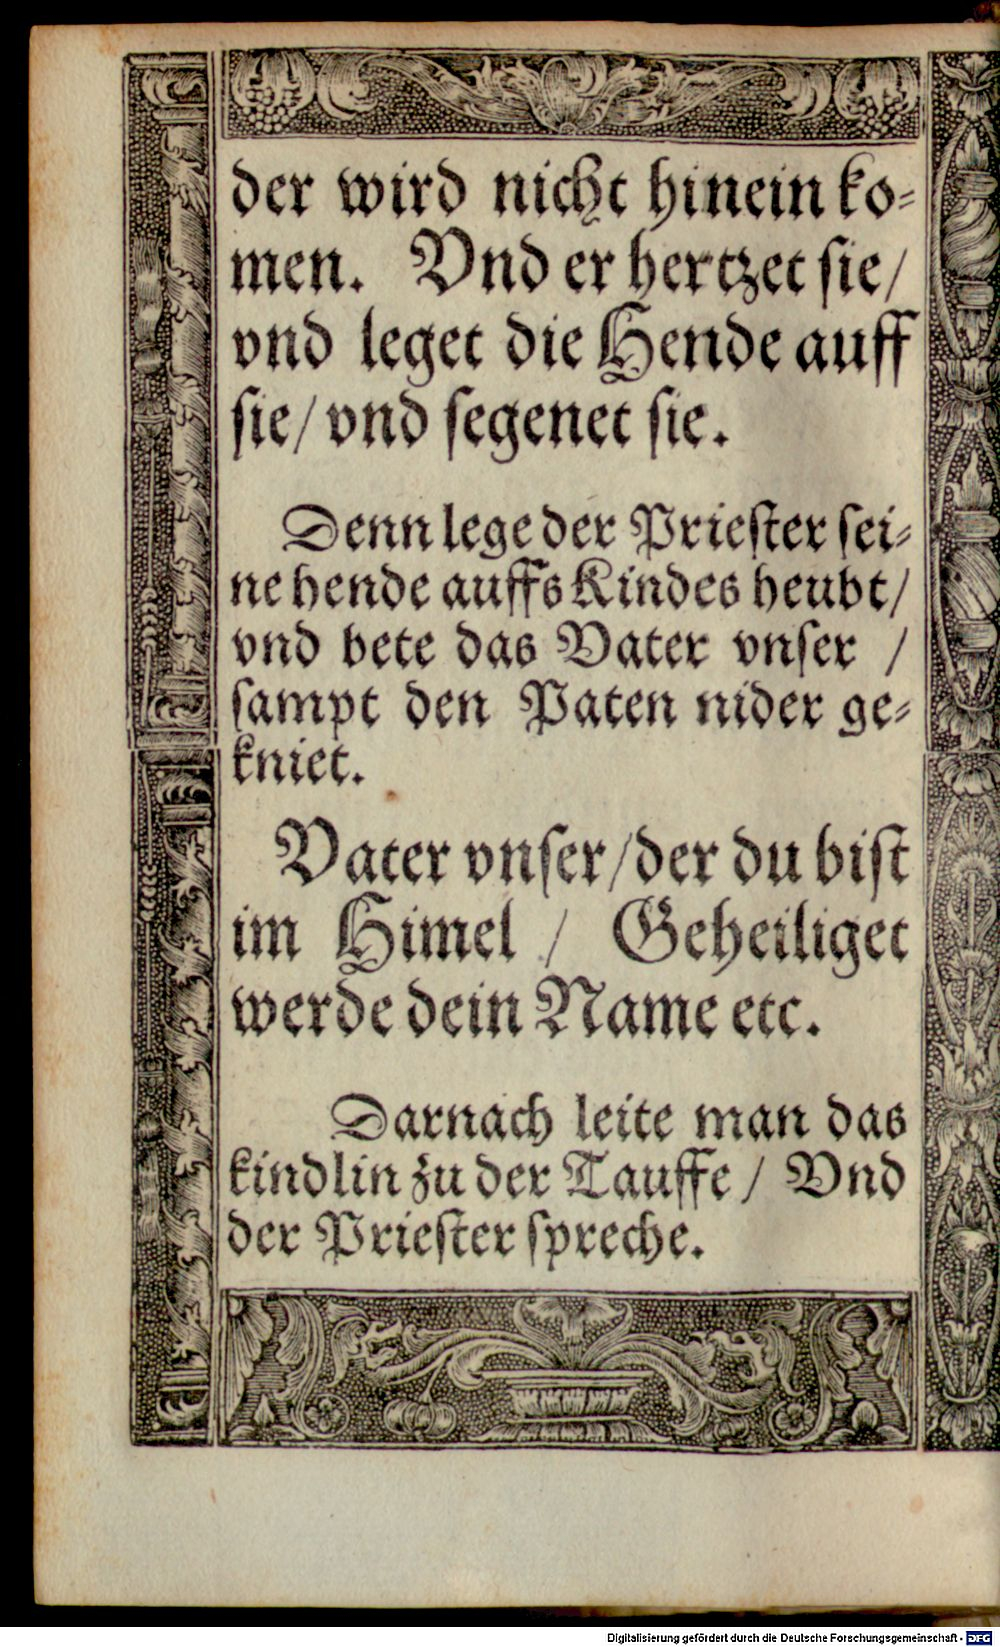 der wird nicht hinein ko⸗
men. Vnd er hertzet sie/
vnd leget die Hende auff
sie/ vnd segenet sie.
Denn lege der Priester sei⸗
ne hende auffs Kindes heubt/
vnd bete das Vater vnser /
sampt den Paten nider ge⸗
kniet.
Vater vnser/ der du bist
im Himel / Geheiliget
werde dein Name etc.
Darnach leite man das
kindlin zu der Tauffe/ Vnd
der Priester spreche.
Digitalisierung gefördert durch die Deutsche Forschungsgemeinschaft - DFG